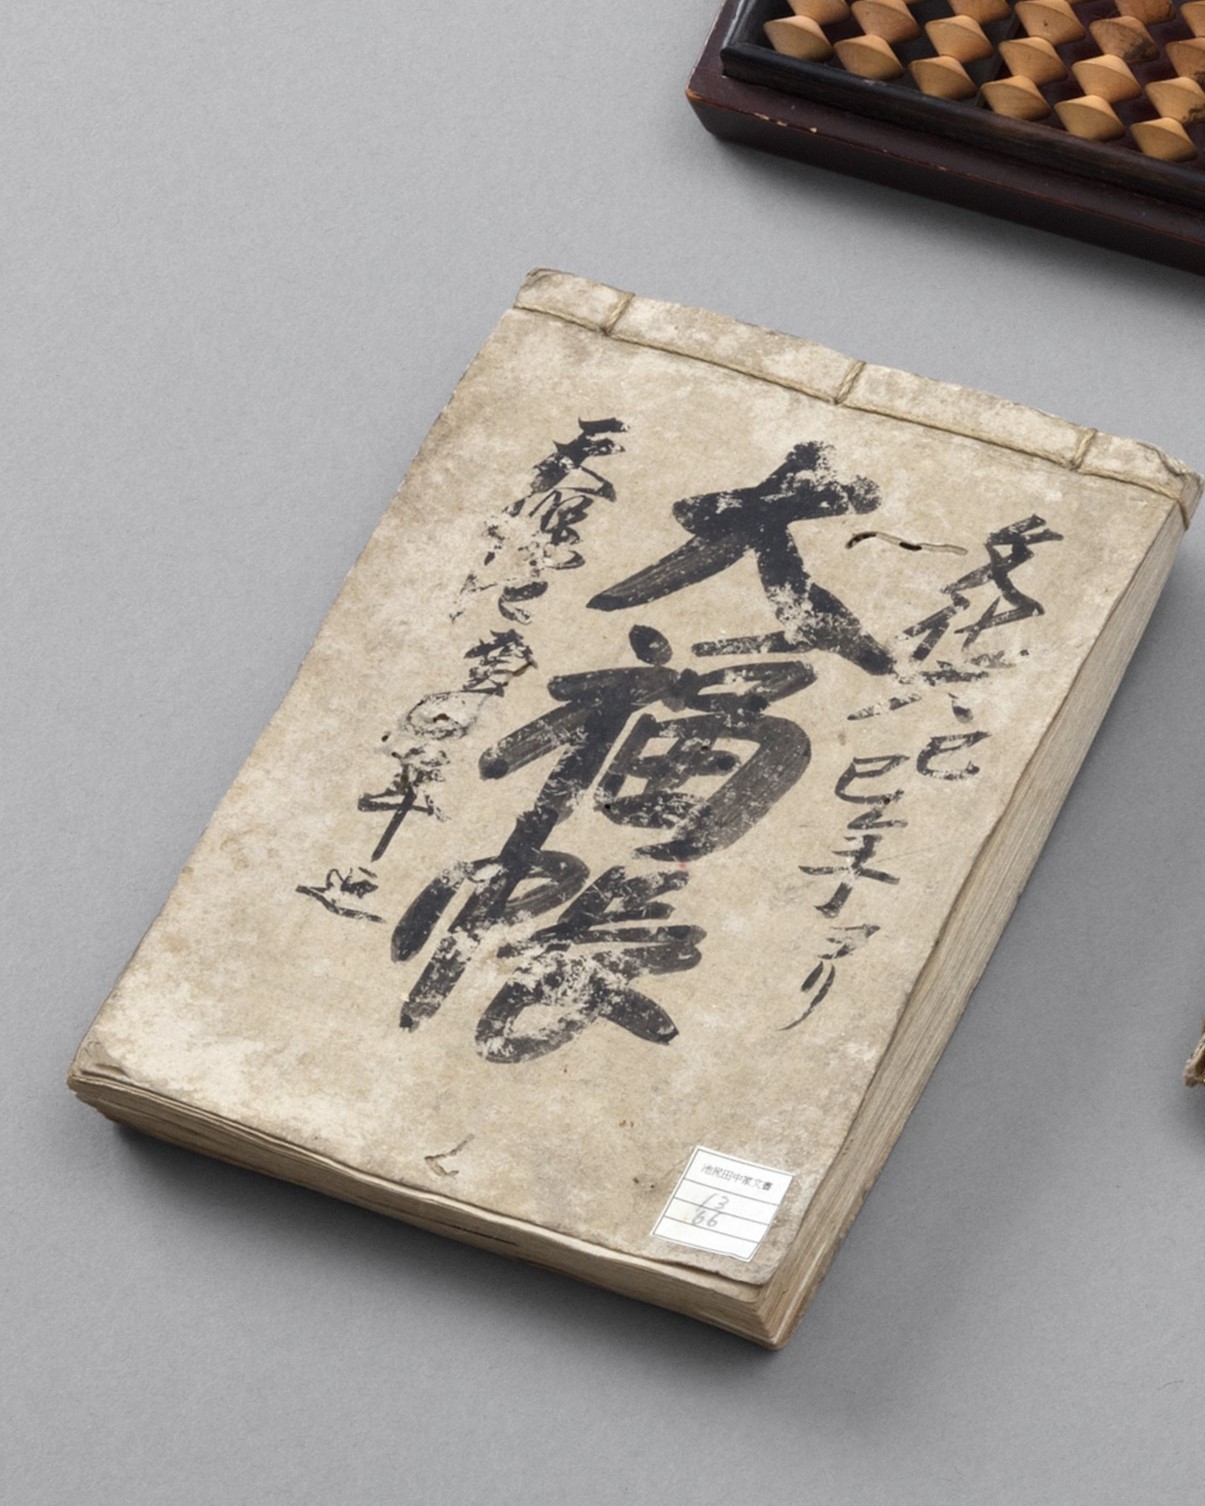 文化六己巳年ヨリ
大福帳
天保年迄
田中家文書
13
66